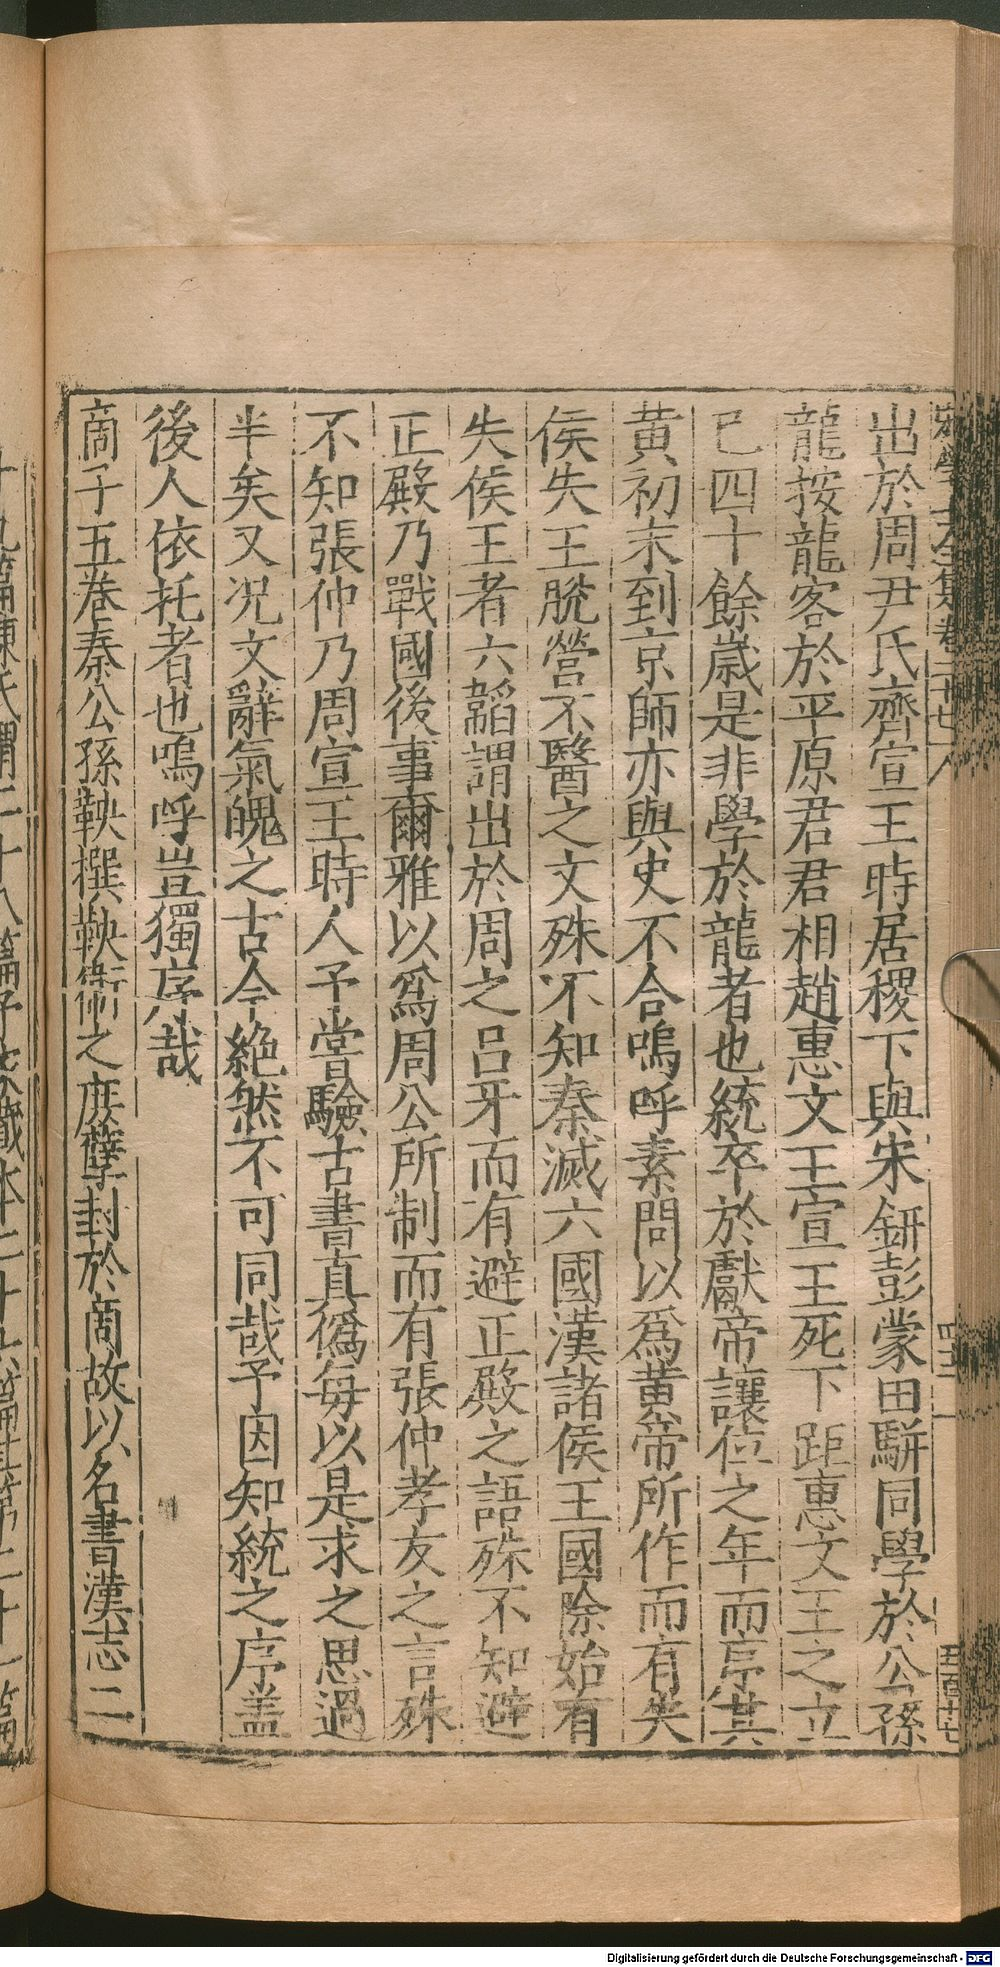 出於周尹氏齊宣王時居稷下與宋鈃彭蒙田駢同學於公孫
龍按龍客於平原君君相趙惠文王宣王死下距惠文王之立
已四十餘歲是非學於龍者也統卒於獻帝讓位之年而序其
黃初末到京師亦與史不合嗚呼素問以爲黃帝所作而有失
侯失王脫營不醫之文殊不知秦滅六國漢諸侯王國除始有
失侯王者六韜謂出於周之呂牙而有避正殿之語殊不知避
正殿乃戰國後事爾雅以爲周公所制而有張仲孝友之言殊
不知張仲乃周宣王時人予嘗驗古書真僞每以是求之思過
半矣又況文辭氣魄之古今絶然不可同哉予因知統之序盖
後人依托者也嗚呼豈獨序哉
商子五巻秦公孫鞅撰鞅衛之庶孽封於商故以名書漢志二
Digitalisierung gefördert durch die Deutsche Forschungsgemeinschaft - DFG